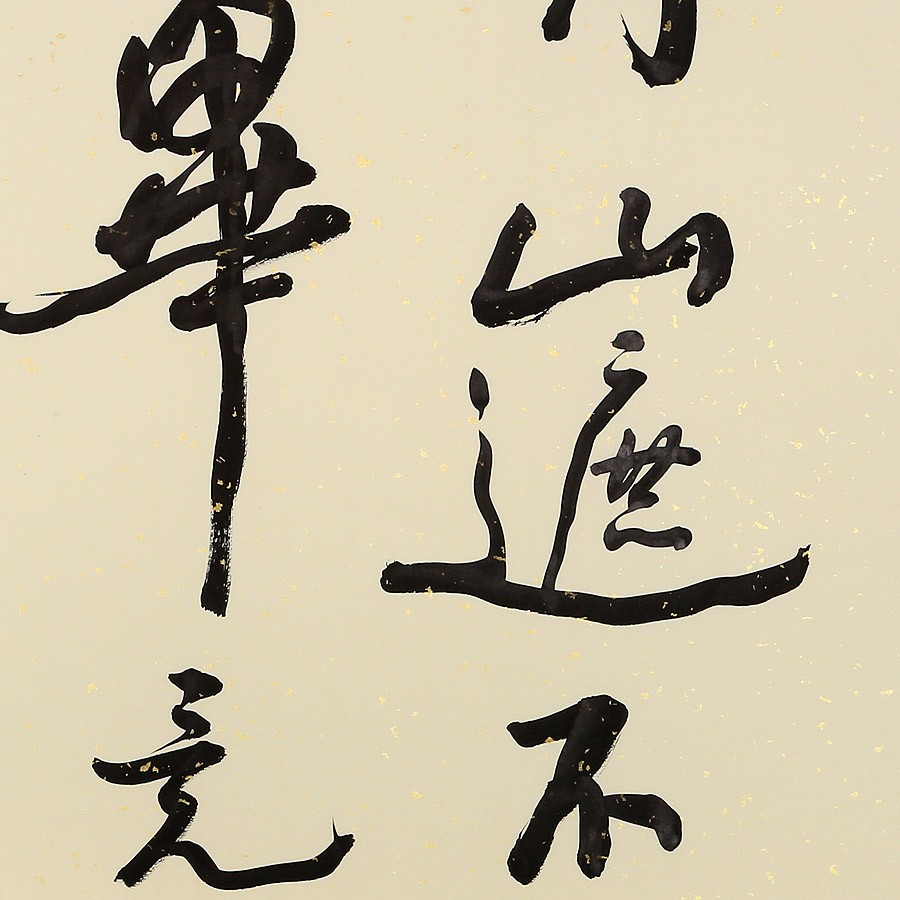 山遮不
畢竟